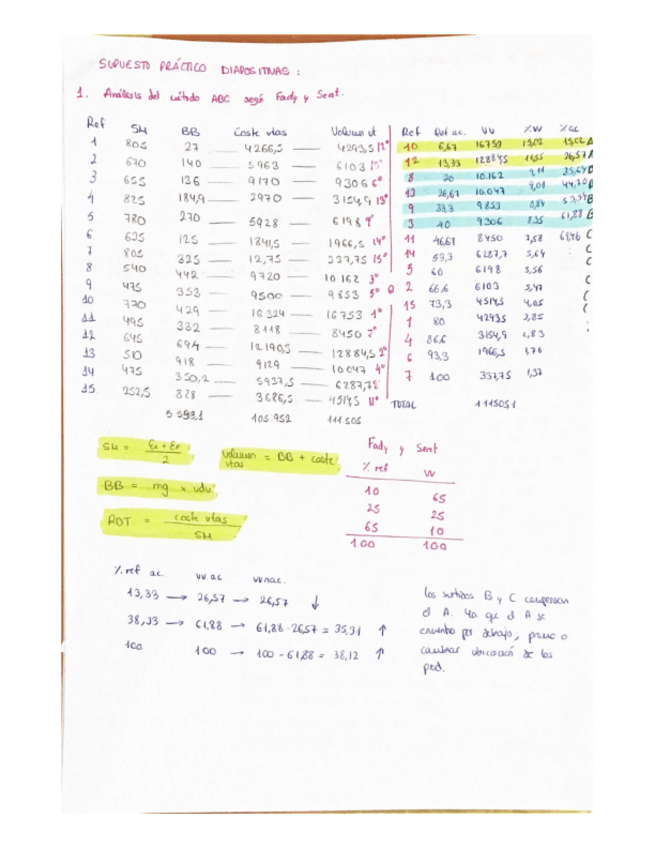 SUPUESTO PRÁCTICO DIAPOSITIVAS :
1. Análisis del método ABC según Fady y Seret.
Ref SM BB Coste vtas Volumen vt
1 805 27 — 4266,5 — 4293,5 12º
2 670 140 — 5963 — 6103 10º
3 655 136 — 9170 — 9306 6º
4 825 184,9 — 2970 — 3154,9 13º
5 780 270 — 5928 — 6198 9º
6 635 125 — 1841,5 — 1966,5 14º
7 805 325 — 12,75 — 337,75 15º
8 540 442 — 9720 — 10 162 3º
9 475 353 — 9500 — 9853 5º
10 770 429 — 16 324 — 16 753 1º
11 495 332 — 8118 — 8450 7º
12 645 694 — 12 190,5 — 12 884,5 2º
13 510 918 — 9129 — 10 047 4º
14 475 350,2 — 5937,5 — 6287,7 8º
15 252,5 828 — 3686,5 — 4514,5 11º
5 593,1 105.952 111 505
Ref Ref ac. VV %VV %ac
10 6,67 16753 15,02 15,02 A
12 13,33 12884,5 11,55 26,57 A
8 20 10.162 9,11 35,69 B
13 26,67 10.047 9,01 44,70 B
9 33,3 9853 8,84 B
3 40 9306 8,35 61,88 B
11 46,67 8450 7,58 C
14 53,3 6287,7 5,64 C
5 60 6198 5,56 C
2 66,6 6103 5,47
15 73,3 4514,5 4,05
1 80 4293,5 3,85
4 86,6 3154,9 2,83
6 93,3 1966,5 1,76
7 100 337,75
TOTAL
SM = Ei + Ef / 2
Volumen vtas = BB + coste
BB = mg x vdu.
ROT = coste vtas / SM
Fady y Seret
% ref VV
10 65
25 25
65 10
100 100
% ref ac. VV ac VV nac.
13,33 → 26,57 → 26,57 ↓
38,33 → 61,88 → 61,88 - 26,57 = 35,31 ↑
100 100 → 100 - 61,88 = 38,12 ↑
Los surtidos B y C compensan
el A. Ya que el A se
encuentra por debajo,
cambiar ubicación de los
prod.